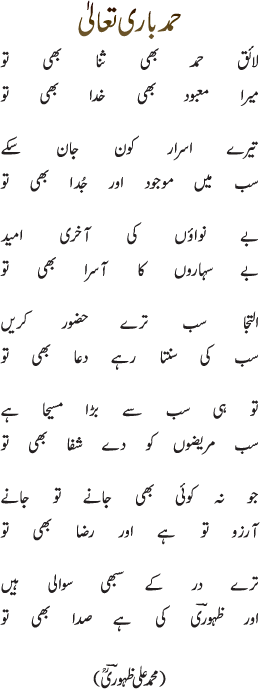 حمد باری تعالیٰ
لائق حمد بھی ثنا بھی تو
میرا معبود بھی خدا بھی تو
تیرے اسرار کون جان سکے
سب میں موجود اور جُدا بھی تو
بے نواؤں کی آخری امید
بے سہاروں کا آسرا بھی تو
التجا سب ترے حضور کریں
سب کی سنتا رہے دعا بھی تو
تو ہی سب سے بڑا مسیحا ہے
سب مریضوں کو دے شفا بھی تو
جو نہ کوئی بھی جانے تو جانے
آرزو تو ہے اور رضا بھی تو
ترے در کے سبھی سوالی ہیں
اور ظہوریؔ کی ہے صدا بھی تو
(محمد علی ظہوریؔؒ)